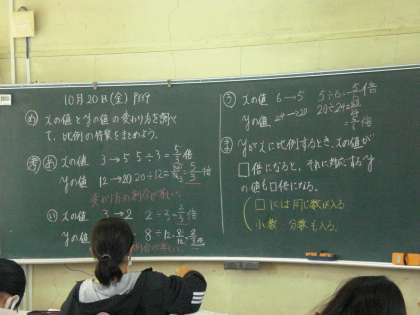 10月20日(金) P159
め xの値とyの値の変わり方を調べ
て、比例の特ちょうをまとめよう。
考 あ xの値 3→5 5÷3=5/3倍
yの値 12→20 20÷12=20/12=5/3倍
変わり方の割合が等しい。
い xの値 3→2 2÷3=2/3倍
yの値 8÷12=8/12=2/3倍
う xの値 6→5 5÷6=5/6倍
yの値 24→20 20÷24=20/24
=5/6倍
ま yがxに比例するとき、xの値が
□倍になると、それに対応するy
の値も□倍になる。
□には同じ数が入る
小数 分数も入る。